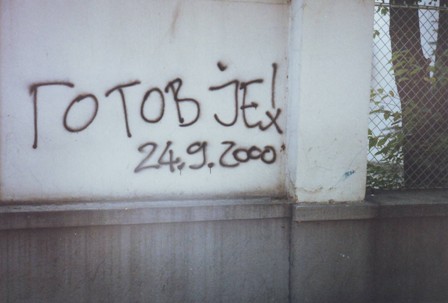 ГОТОВ јЕ!
24.9.2000